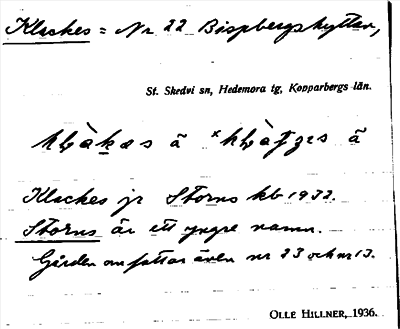 Klackes = Nr 22 Bispbergshyttan,
St. Skedvi sn, Hedemora tg, Kopparbergs län.
Klackes jr Storns kb 1932.
Storns är ett yngre namn.
Gården omfattar även nr 23 och nr 13.
OLLE HILLNER, 1936.